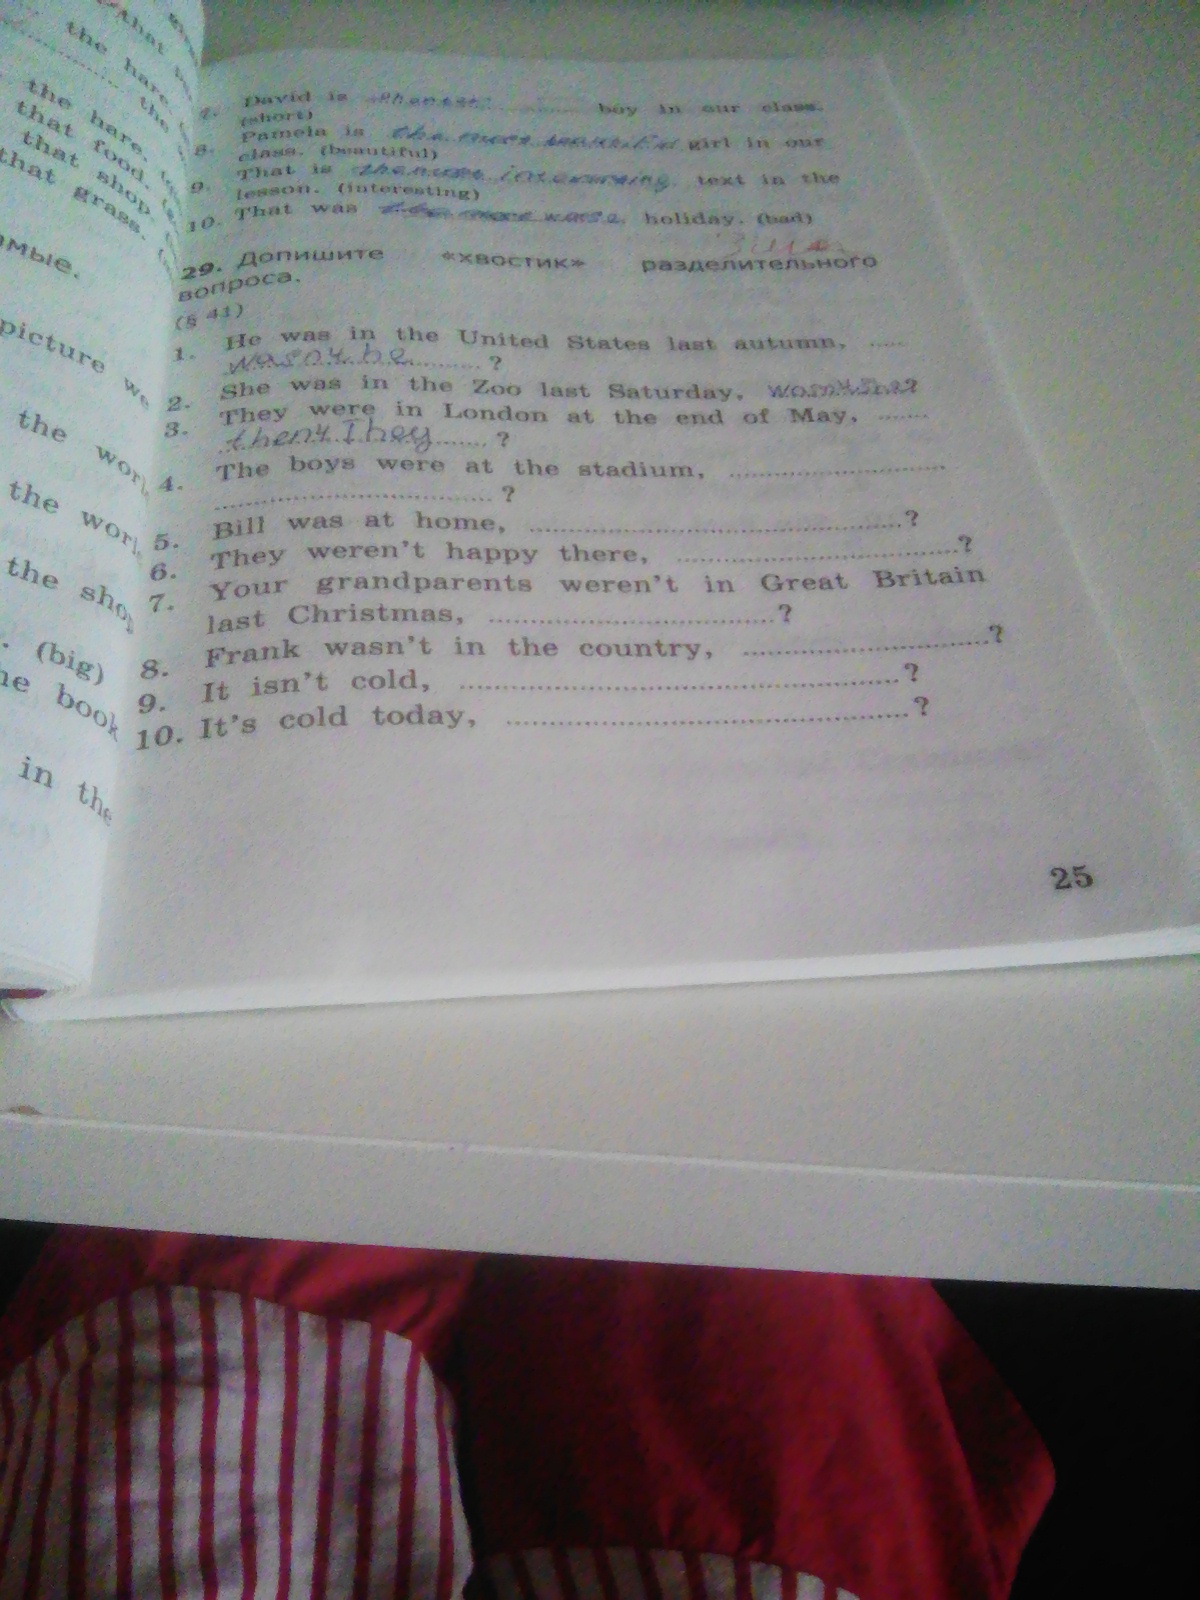 that
the hare.
the
the hare.
that food.
that shop
that grass.
омые.
picture we
the worl
the worl
the shop
(big)
he book
in the
7. David is boy in our class.
(short)
8. Pamela is the more girl in our
class. (beautiful)
9. That is text in the
lesson. (interesting)
10. That was holiday. (bad)
29. Допишите «хвостик» разделительного
вопроса.
(§ 41)
1. He was in the United States last autumn, .....
he ........ ?
2. She was in the Zoo last Saturday, ?
3. They were in London at the end of May, .......
they ....... ?
4. The boys were at the stadium, ............................
................................... ?
5. Bill was at home, ................................................?
6. They weren't happy there, ...................................?
7. Your grandparents weren't in Great Britain
last Christmas, ....................................?
8. Frank wasn't in the country, ...............................?
9. It isn't cold, ......................................................?
10. It's cold today, .................................................?
25